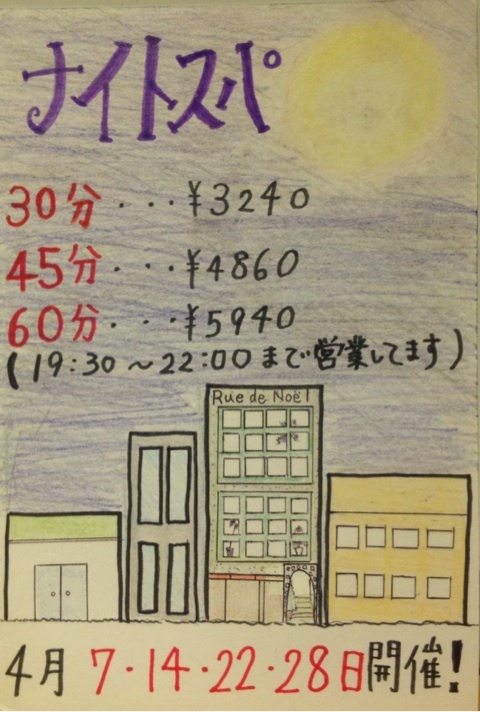 ナイトスパ
30分・・・¥3240
45分・・・¥4860
60分・・・¥5940
(19:30〜22:00まで営業してます)
Rue de Noël
4月 7・14・22・28日開催!